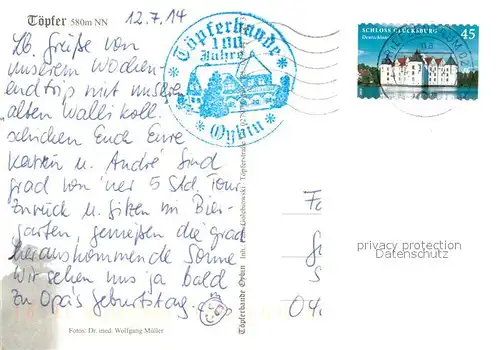 Töpfer 580m NN
12.7.14
LG. Grüße von
unserem Wochen-
endtrip mit unseren
"alten Walli koll
schicken Euch Eure
Katrin u. André Sind
grad von 'ner 5 Std. Tour
zurück u. sitzen im Bier-
garten, genießen die grad
herauskommende Sonne
Wir sehen uns ja bald
zu Opa's Geburtstag.
Fotos: Dr. med. Wolfgang Müller
Töpferbaude
100
Jahre
Oybin
Töpferbaude Oybin
SCHLOSS GLÜCKSBURG
Deutschland
45
privacy protection
Datenschutz
04